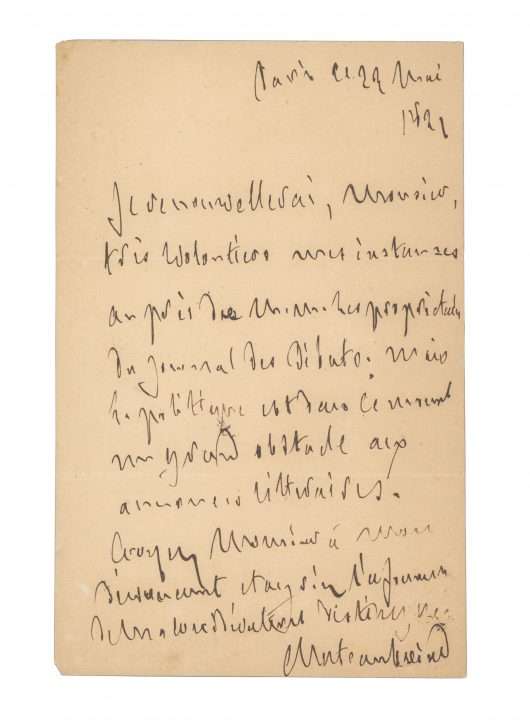 Paris ce 22 Mai
1821
Je renouvellerai, Monsieur,
très volontiers mes instances
auprès de M.M. les propriétaires
du Journal des Débats. Mais
la politique est dans ce moment
un grand obstacle aux
annonces littéraires.
Croyez Monsieur à mon
dévouement et agréez l'assurance
de ma considération distinguée
Chateaubriand